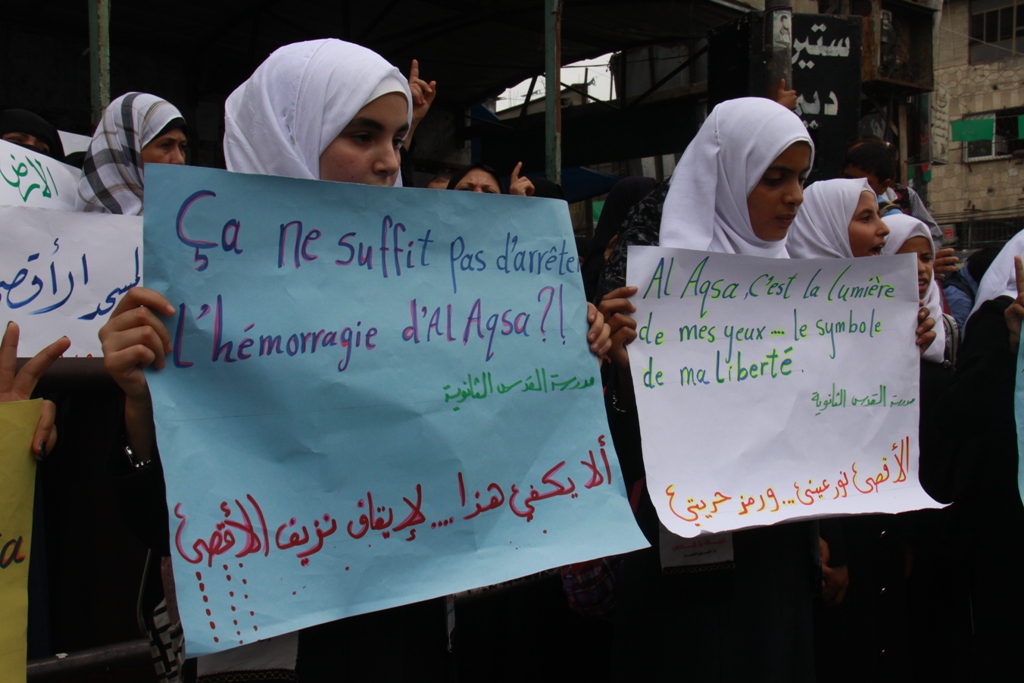 ستير
دي
الارض
المسجد الأقصى
Ça ne suffit pas d'arrêter
L'hémorragie d'Al Aqsa?!
مدرسة القدس الثانوية
ألا يكفي هذا .... لإيقاف نزيف الأقصى
Al Aqsa, c'est la lumière
de mes yeux .... le symbole
de ma liberté.
مدرسة القدس الثانوية
الأقصى نور عيني ... ورمز حريتي